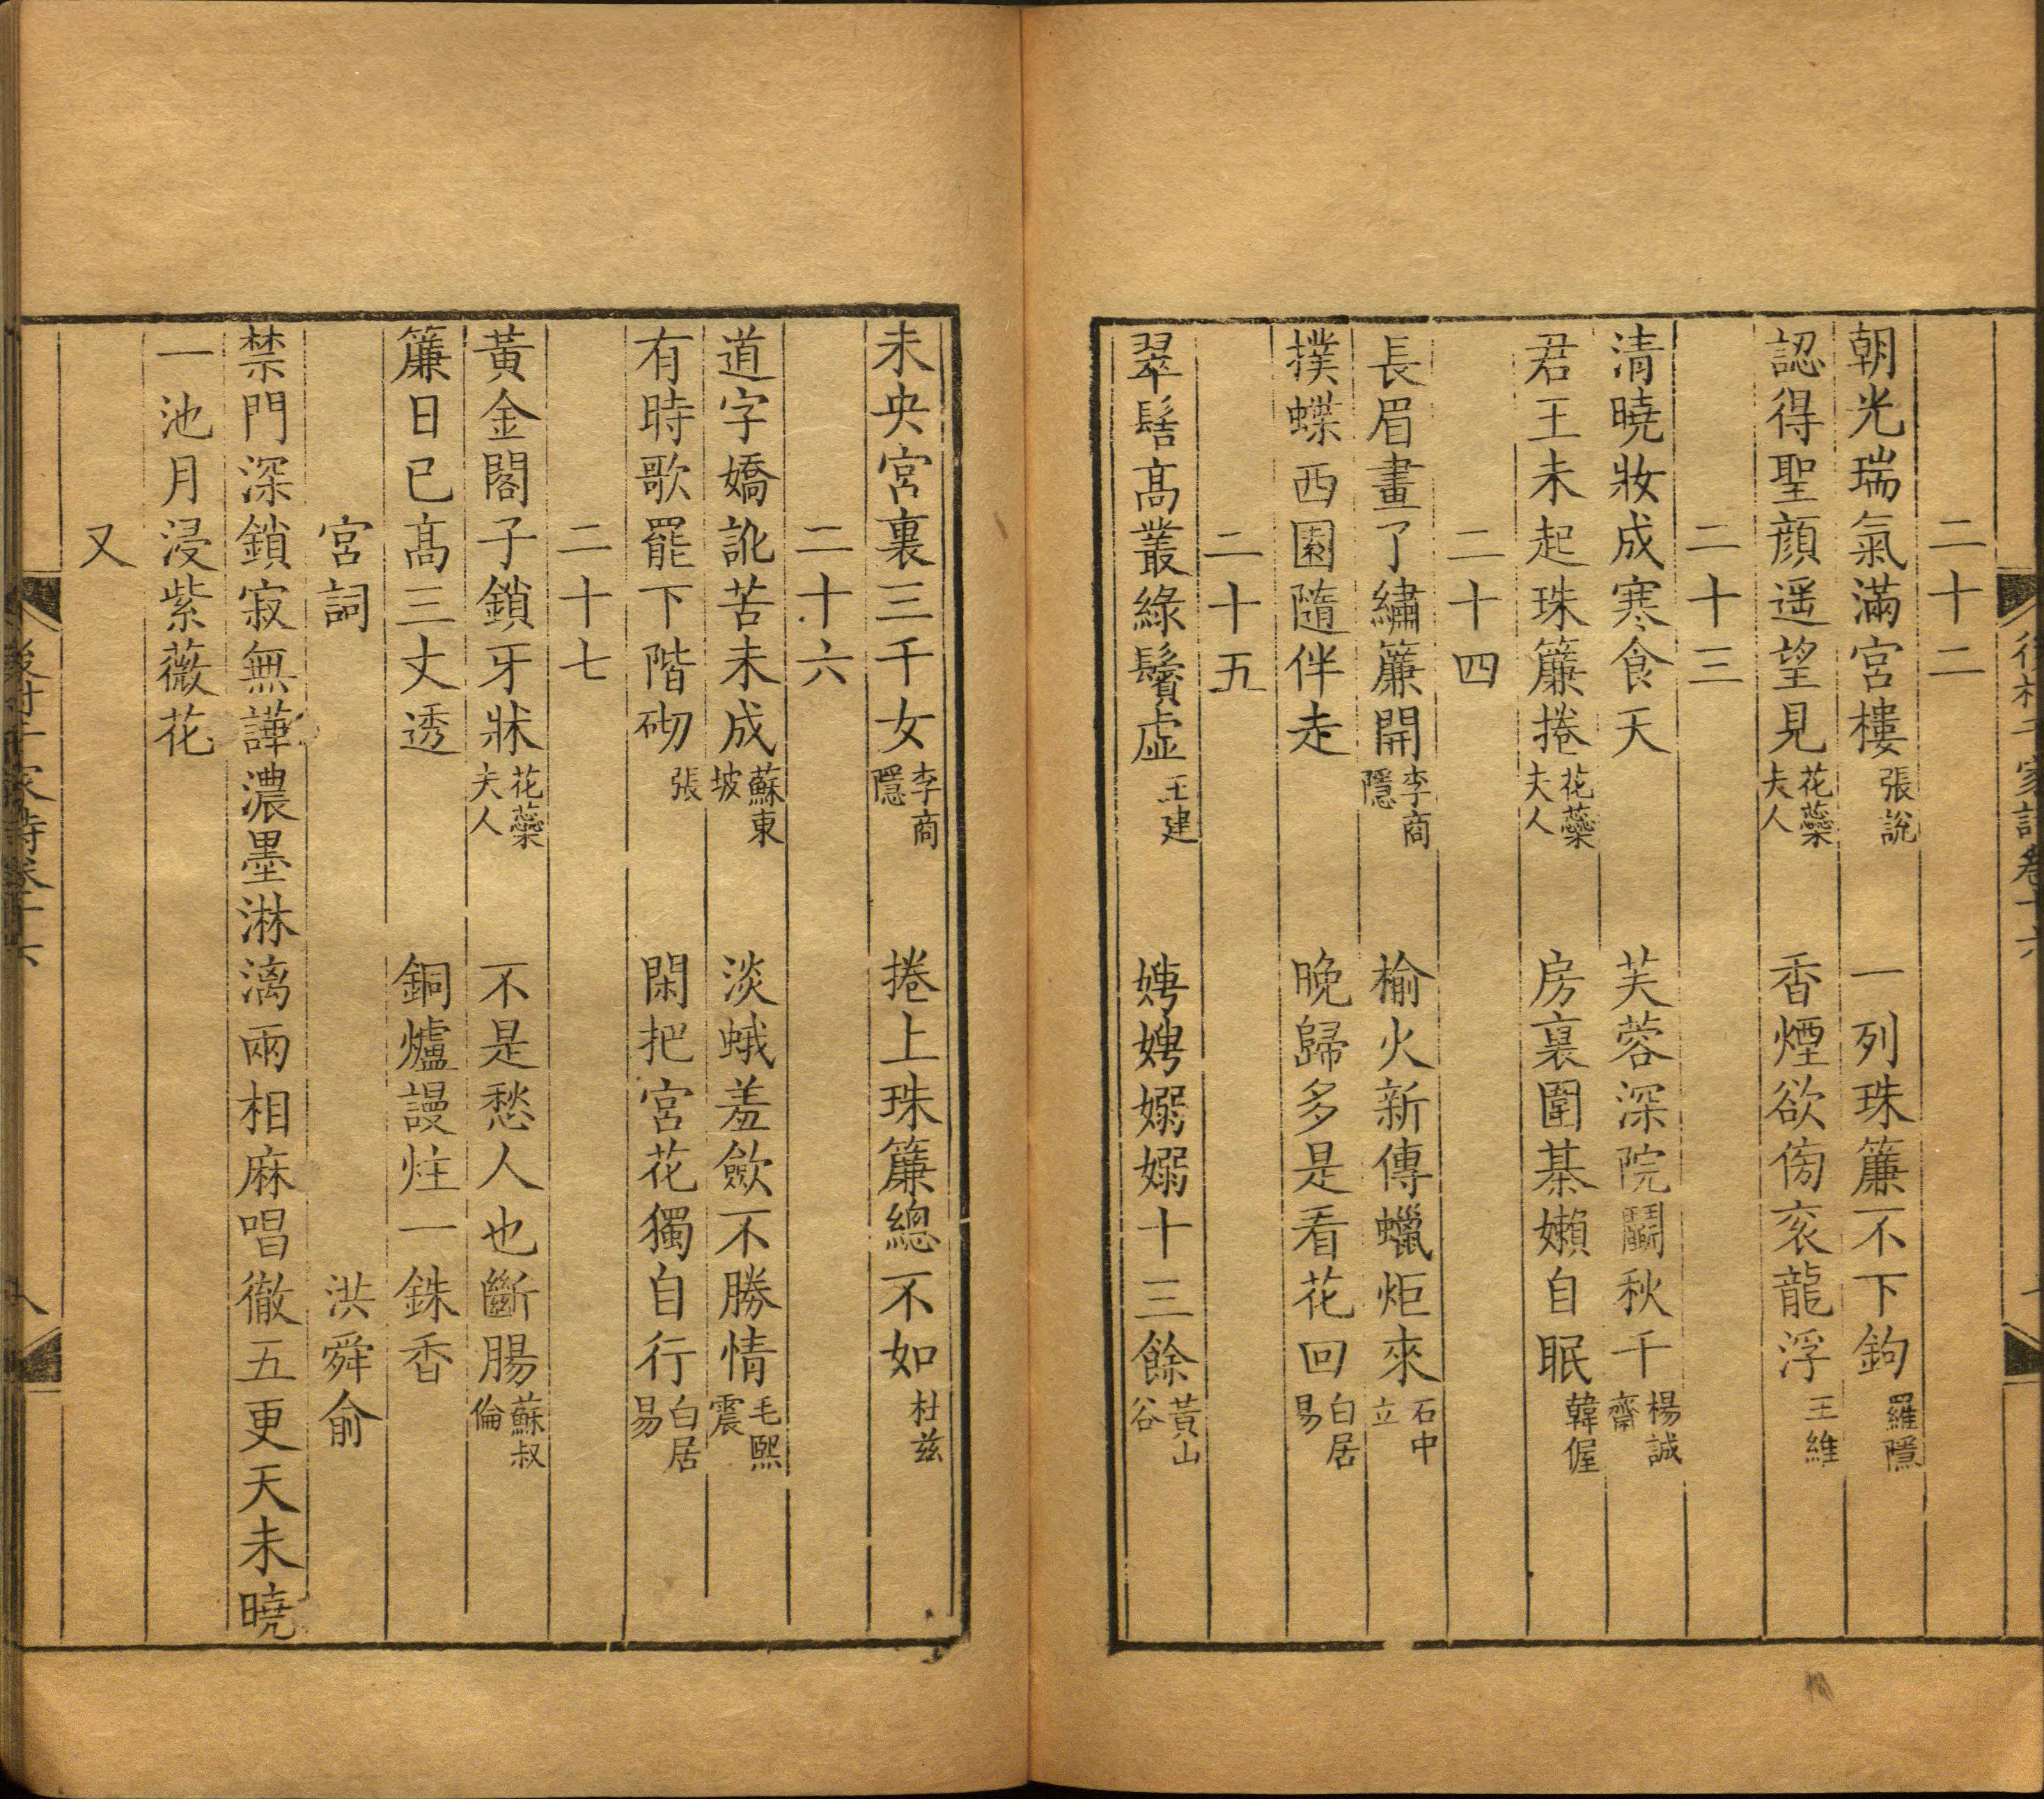 二十二
朝光瑞氣滿宮樓張說　一列珠簾不下鉤羅隱
認得聖顔遥望見花蘂夫人　香煙欲傍衮龍浮王維
二十三
清曉妝成寒食天　芙蓉深院鬭秋千楊誠齋
君王未起珠簾捲花蘂夫人　房裏圍棊嬾自眠韓偓
二十四
長眉畫了繡簾開李商隱　榆火新傳蠟炬來石中立
撲蝶西園隨伴走　晚歸多是看花回白居易
二十五
翠髻髙叢綠鬢虛王建　娉娉嫋嫋十三餘黃山谷
未央宮裏三千女李商隱　捲上珠簾總不如杜兹
二十六
道字嬌訛苦未成蘇東坡　淡蛾羞斂不勝情毛熙震
有時歌罷下階砌張　閑把宮花獨自行白居易
二十七
黃金閣子鎖牙牀花蘂夫人　不是愁人也斷腸蘇叔倫
簾日已髙三丈透　銅爐謾炷一銖香
宮詞　洪舜俞
禁門深鎖寂無譁濃墨淋漓兩相麻唱徹五更天未曉
一池月浸紫薇花
又
後村千家詩卷十六
八